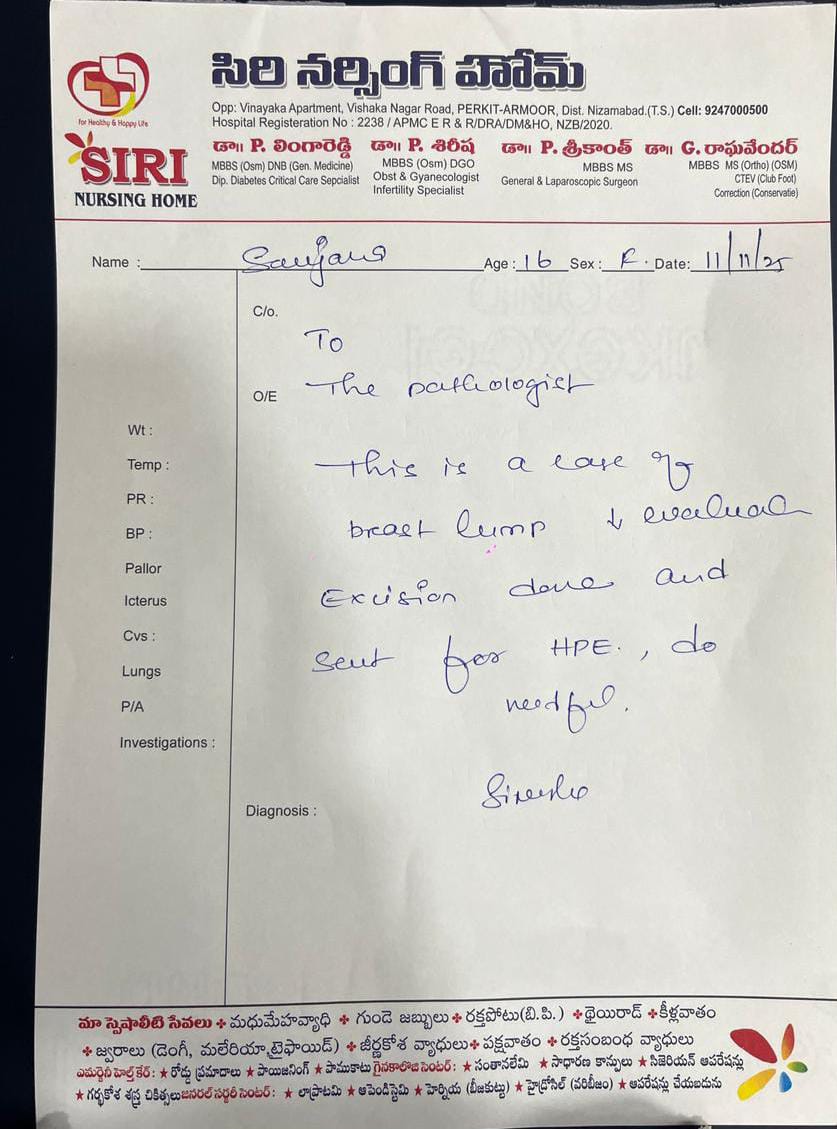 సిరి నర్సింగ్ హోమ్
for Healthy & Happy Life
Opp: Vinayaka Apartment, Vishaka Nagar Road, PERKIT-ARMOOR, Dist. Nizamabad.(T.S.) Cell: 9247000500
Hospital Registeration No : 2238 / APMC E R & R/DRA/DM&HO, NZB/2020.
SIRI
NURSING HOME
డా॥ P. లింగారెడ్డి
MBBS (Osm) DNB (Gen. Medicine)
Dip. Diabetes Critical Care Sepcialist
డా॥ P. శిరీష
MBBS (Osm) DGO
Obst & Gyanecologist
Infertility Specialist
డా॥ P. శ్రీకాంత్
MBBS MS
General & Laparoscopic Surgeon
డా॥ G. రాఘవేందర్
MBBS MS (Ortho) (OSM)
CTEV (Club Foot)
Correction (Conservatie)
Name : Sanjana Age : 16 Sex : F. Date: 11/11/25
C/o.
To
O/E The pathologist
Wt :
Temp : This is a case of
PR :
BP : breast lump ↓ evaluation
Pallor
Icterus Excision done and
Cvs :
Lungs sent for HPE. , do
P/A needful.
Investigations :
Diagnosis :
మా స్పెషాలిటి సేవలు + మధుమేహవ్యాధి + గుండె జబ్బులు + రక్తపోటు(బి.పి.) + థైయిరాడ్ + కీళ్లవాతం
+ జ్వరాలు (డెంగీ, మలేరియా,టైఫాయిడ్) + జీర్ణకోశ వ్యాధులు + పక్షవాతం + రక్తసంబంధ వ్యాధులు
ఎమర్జెనీ హెల్త్ కేర్: ★ రోడ్డు ప్రమాదాలు ★ పాయిజనింగ్ ★ పాముకాటు గైనకాలొజి సెంటర్: ★ సంతానలేమి ★ సాధారణ కాన్పులు ★ సిజెరియన్ ఆపరేషన్లు
★ గర్భకోశ శస్త్ర చికిత్సలు జనరల్ సర్జరీ సెంటర్: ★ లాప్రాటమి ★ అపెండిస్టెమి ★ హెర్నియ (బీజకుట్టు) ★ హైడ్రోసిల్ (వరిబీజం) ★ ఆపరేషన్లు చేయబడును